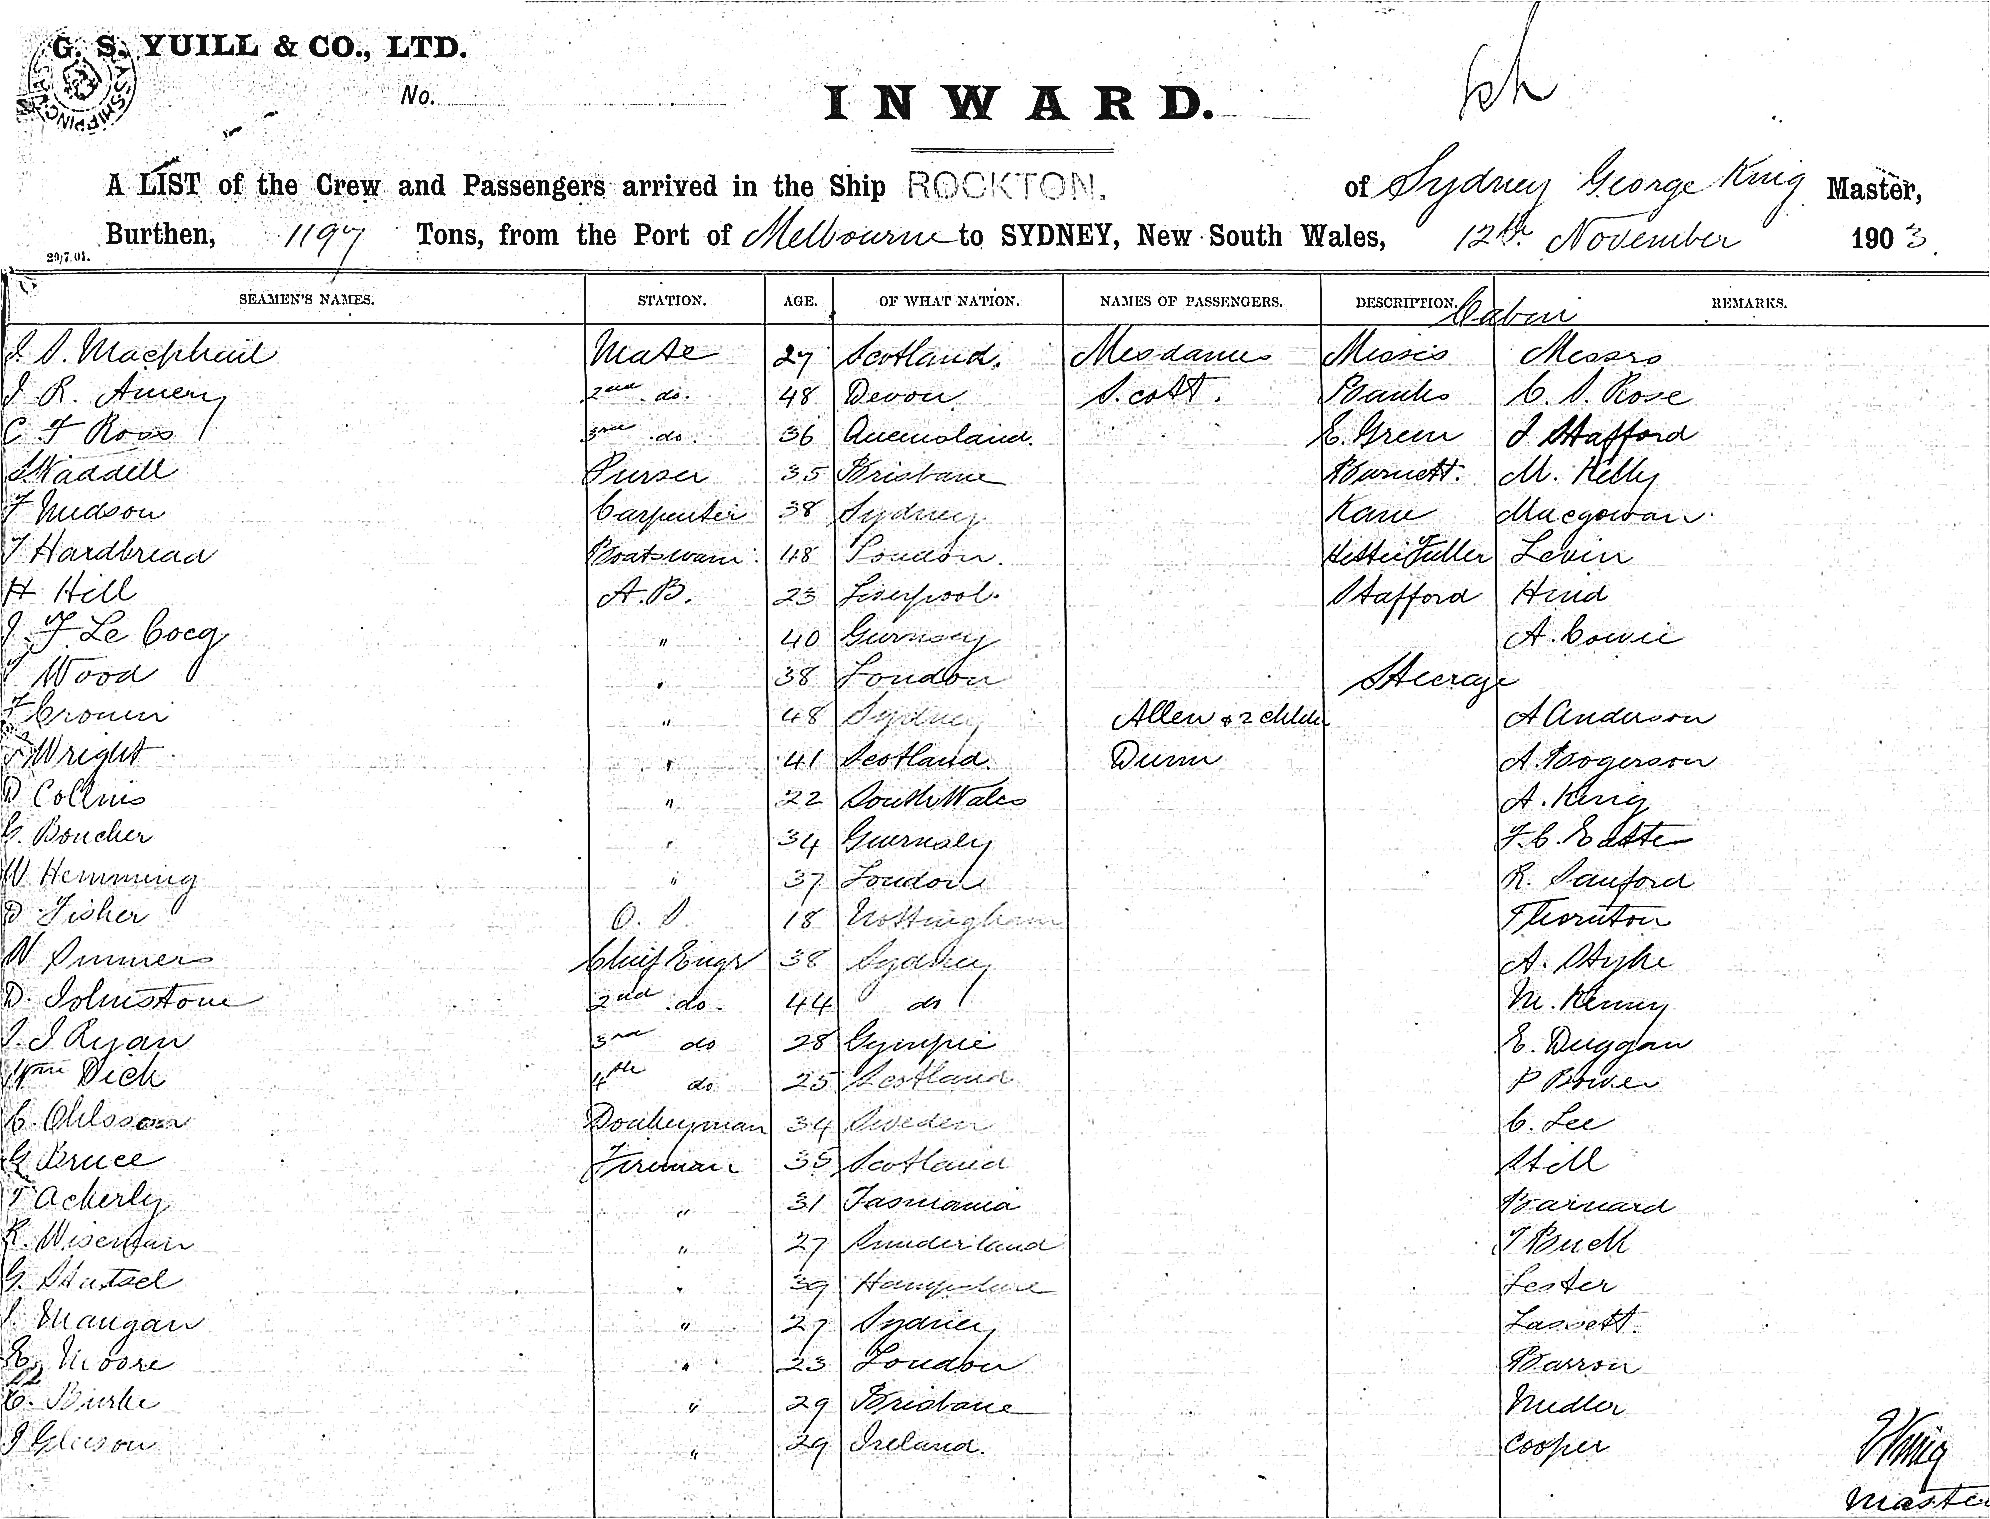 G. S. YUILL & CO., LTD.
No.
INWARD.
A LIST of the Crew and Passengers arrived in the Ship ROCKTON. of Sydney George King Master,
Burthen, 1197 Tons, from the Port of Melbourne to SYDNEY, New South Wales, 12th November 1903.
29/7.01.
SEAMEN'S NAMES. STATION. AGE. OF WHAT NATION. NAMES OF PASSENGERS. DESCRIPTION. REMARKS.
Cabin
J. S. Macphail Mate 27 Scotland. Mesdames Misses Messrs
J R. Amery 2nd do. 48 Devon. Scott. Banks C. S. Rose
C F Ross 3rd do. 36 Queensland. E. Green J Stafford
Waddell Purser 35 Brisbane Barnett. M. Kelly
F Hudson Carpenter 38 Sydney Kane Macgowan.
T Hardbread Boatswain 48 London. Hettie Fuller Levin
H Hill A.B. 23 Liverpool. Stafford Hind
J. F Le Cocq " 40 Gurnsey A. Cowie
Wood " 38 London Steerage
F Cronin " 48 Sydney Allen & 2 childn A Anderson
Wright " 41 Scotland. Dunn A. Bogerson
D Collins " 22 South Wales A. King
G. Boucher " 34 Guernsey F. C. Eatte
W Hemming " 37 London R. Sanford
D Fisher O. S. 18 Nottingham Thornton
W Summers Chief Engr 38 Sydney A. Styke
D. Johnstone 2nd do. 44 do M. Kenny
J. J Ryan 3rd do 28 Gympie E. Duggan
Wm Dick 4th do 25 Scotland P Bower
C. Ohlsson Donkeyman 34 Sweden C. Lee
G Bruce Fireman 35 Scotland Still
T Ackerly " 31 Tasmania Barnard
R. Wiseman " 27 Sunderland J Buck
G. " 39 Hampshire Lester
J. Mangan " 27 Sydney Lassett.
E. Moore " 23 London Barron
C. Burke " 29 Brisbane Nudler
J Gleeson " 29 Ireland. Cooper
King
Master